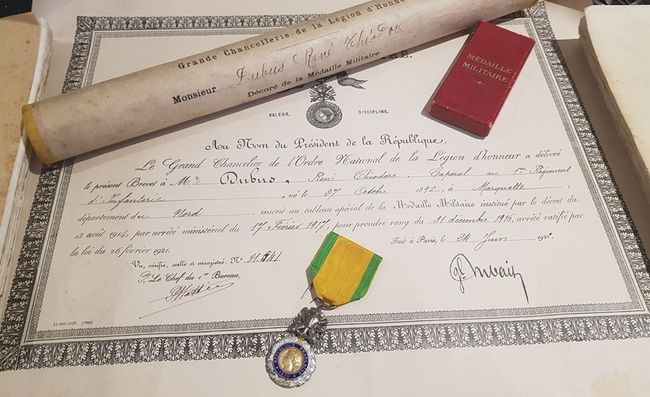 Grande Chancellerie de la Légion d'honneur
Monsieur Dubus René Théodore
Décoré de la Médaille Militaire
MÉDAILLE
MILITAIRE
VALEUR DISCIPLINE.
Au Nom du Président de la République,
Le Grand Chancelier de l'Ordre National de la Légion d'honneur a délivré
le présent Brevet à Mr Dubus, René Théodore, Caporal au 1er Régiment
d'Infanterie, né le 27 Octobre à
département du Nord, inscrit au tableau spécial de la Médaille Militaire institué par le décret du
13 août 1914, par arrêté ministériel du 17 Février 1917, pour prendre rang du 31 décembre 1916, arrêté ratifié par
la loi du 26 février 1921.
Fait à Paris, le 24 Juin
Vu, vérifié, scellé et enregistré, N°
Le Chef du 1er Bureau,